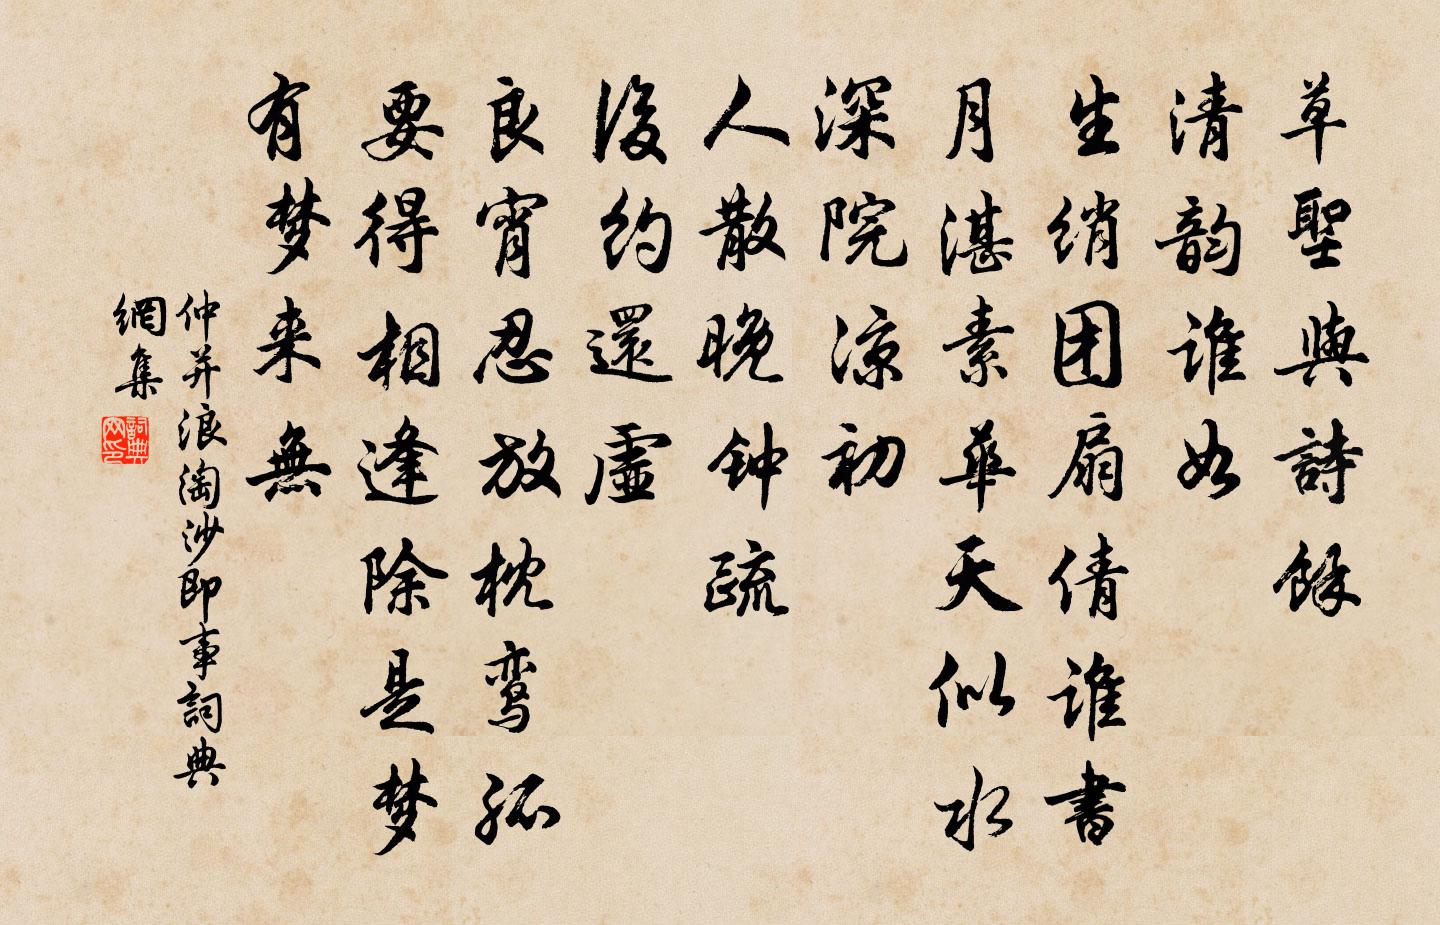 草聖與詩餘
清韵谁如
生绡团扇倩谁書
月湛素華天似水
深院凉初
人散晚钟疏
後约還虛
良宵忍放枕鸾孤
要得相逢除是梦
有梦来無
仲并浪淘沙即事詞典
網集
詞典网印